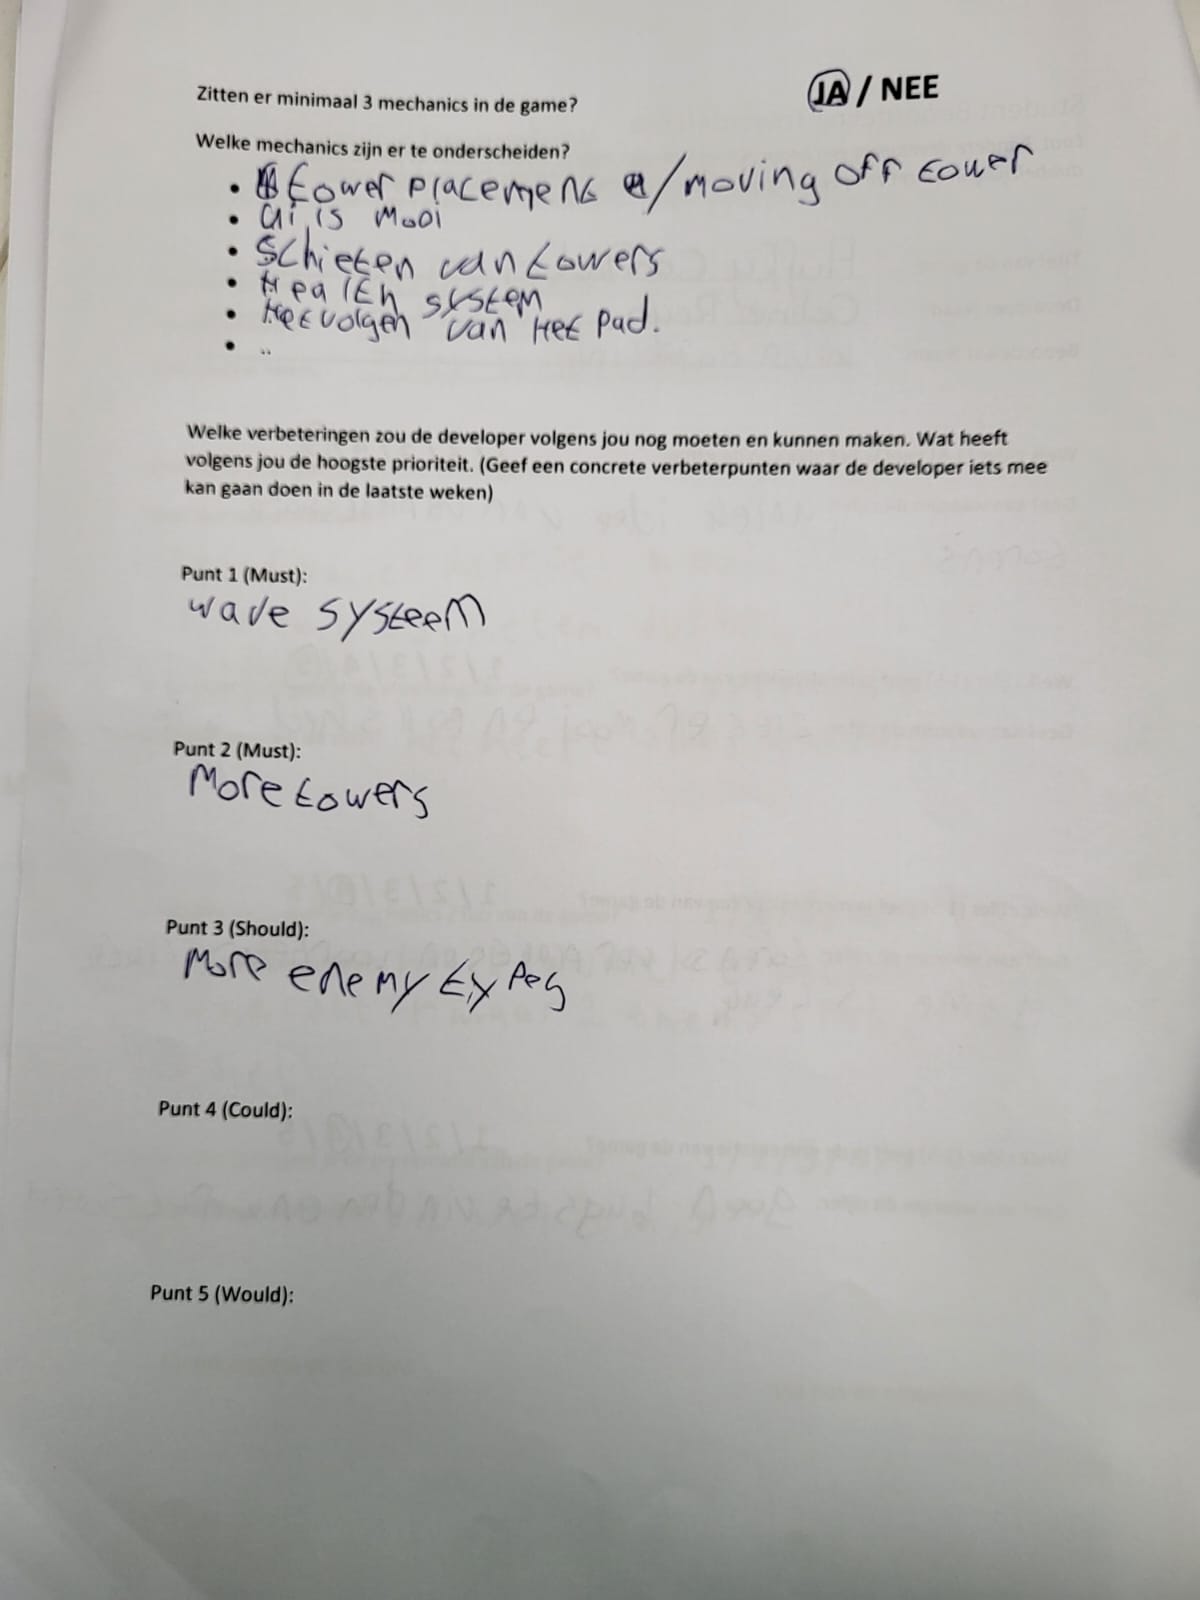 Zitten er minimaal 3 mechanics in de game? JA / NEE
Welke mechanics zijn er te onderscheiden?
• tower placement /moving off tower
• Ui is mooi
• Schieten van towers
• Health system
• Het volgen van Het pad.
• ..
Welke verbeteringen zou de developer volgens jou nog moeten en kunnen maken. Wat heeft
volgens jou de hoogste prioriteit. (Geef een concrete verbeterpunten waar de developer iets mee
kan gaan doen in de laatste weken)
Punt 1 (Must):
wave systeem
Punt 2 (Must):
More towers
Punt 3 (Should):
More enemy types
Punt 4 (Could):
Punt 5 (Would):